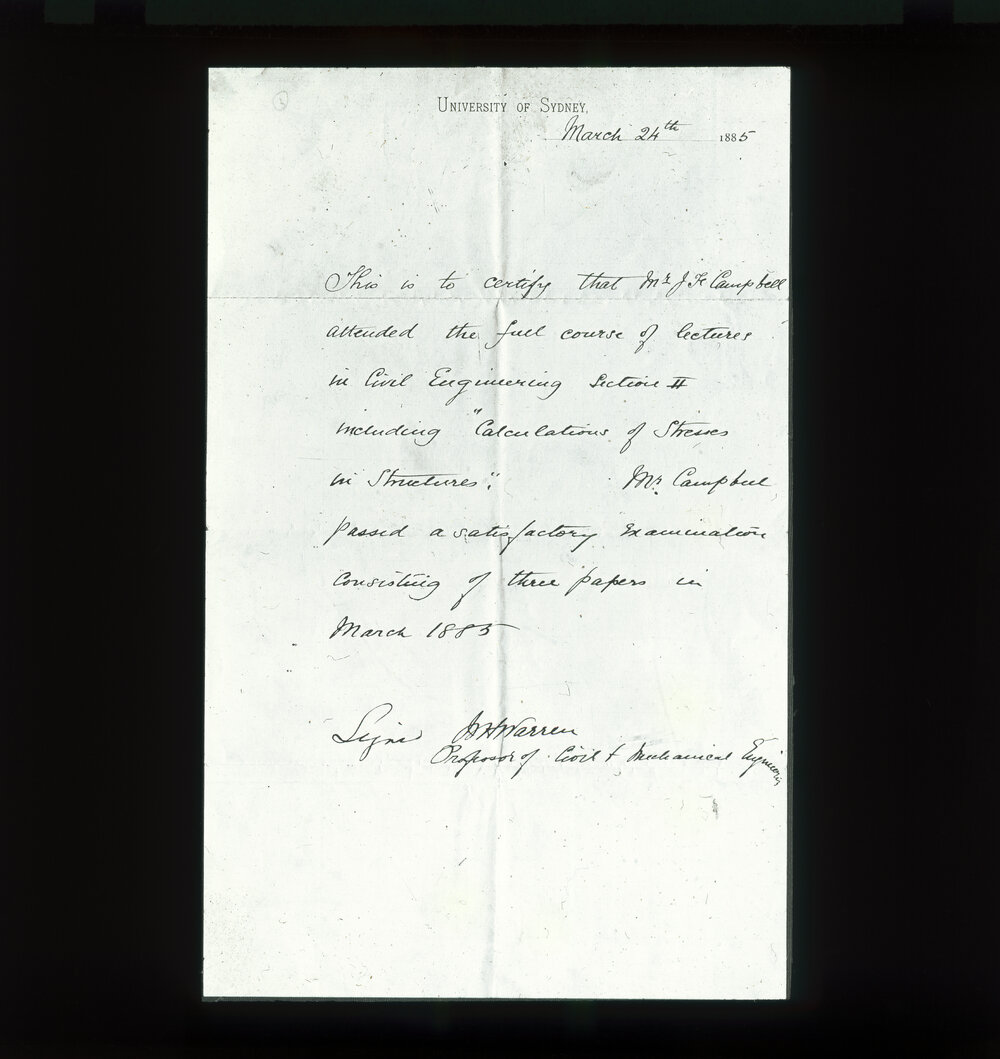 University of Sydney,
March 24th 1885
This is to certify that Mr J F Campbell
attended the full course of lectures
in Civil Engineering Section II
including "Calculations of Stresses
in Structures". Mr. Campbell
passed a satisfactory Examination
Consisting of three papers in
March 1885
Signed W H Warren
Professor of Civil & Mechanical Engineering